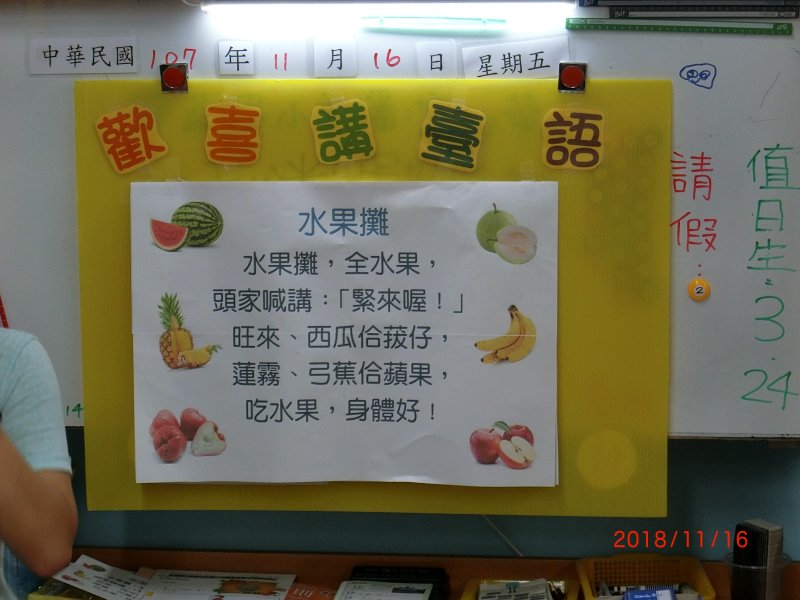 中華民國 107 年 11 月 16 日 星期五
歡喜講臺語
水果攤
水果攤，全水果，
頭家喊講：「緊來喔！」
旺來、西瓜佮菝仔，
蓮霧、弓蕉佮蘋果，
吃水果，身體好！
請假：
2
值日生：3.24
14
2018/11/16